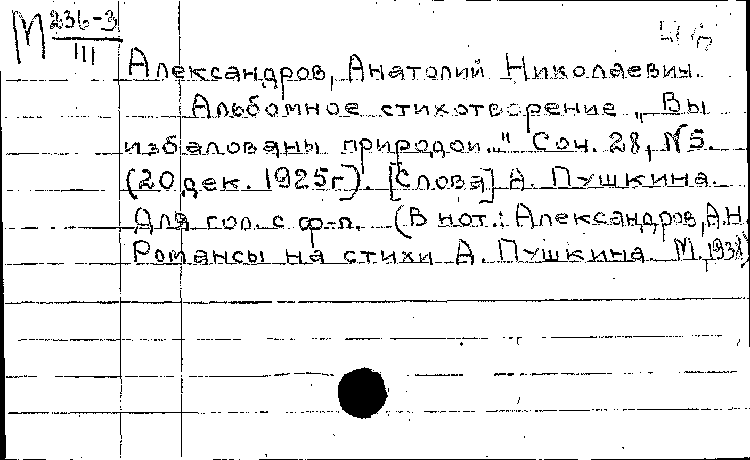 М 236-3
III
Александров, Анатолий Николаевич.
Альбомное стихотворение „Вы
избалованы природой..." Соч. 28, №5.
(20 дек. 1925г.). [Слова] А. Пушкина.
Для гол. с ф-п. (В нот.: Александров, А.Н.
Романсы на стихи А. Пушкина. М., 1938)